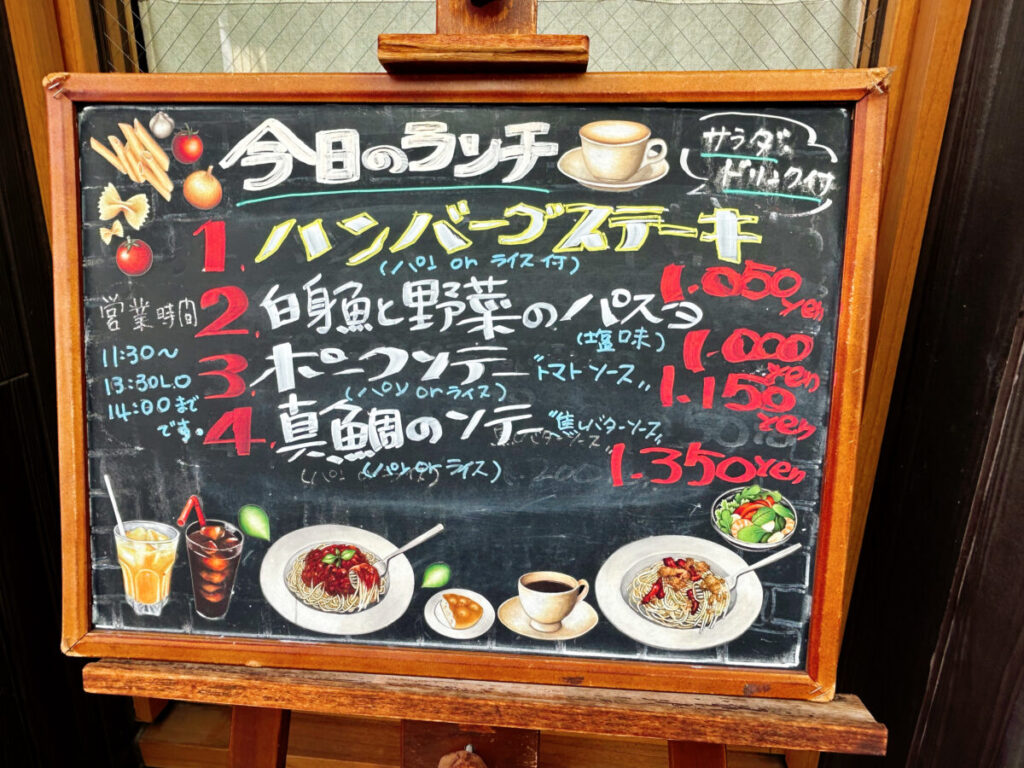 今日のランチ
サラダ、
ドリンク付
1. ハンバーグステーキ
(パン or ライス付)
1.050yen
2. 白身魚と野菜のパスタ
(塩味)
1.000yen
3. ポークソテー "トマトソース"
(パン or ライス)
1.150yen
4. 真鯛のソテー "焦しバターソース"
(パン or ライス)
1.350yen
営業時間
11:30〜
13:30L.O
14:00まで
です。